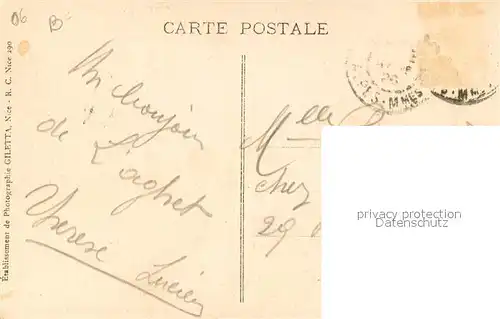 06 B
CARTE POSTALE
Etablissement de Photographie GILETTA, Nice - R. C. Nice 290
Un bonjour
de Laghet
Therese Lucien
Melle
Chez
29
ALPES-MMES
MMES
privacy protection
Datenschutz